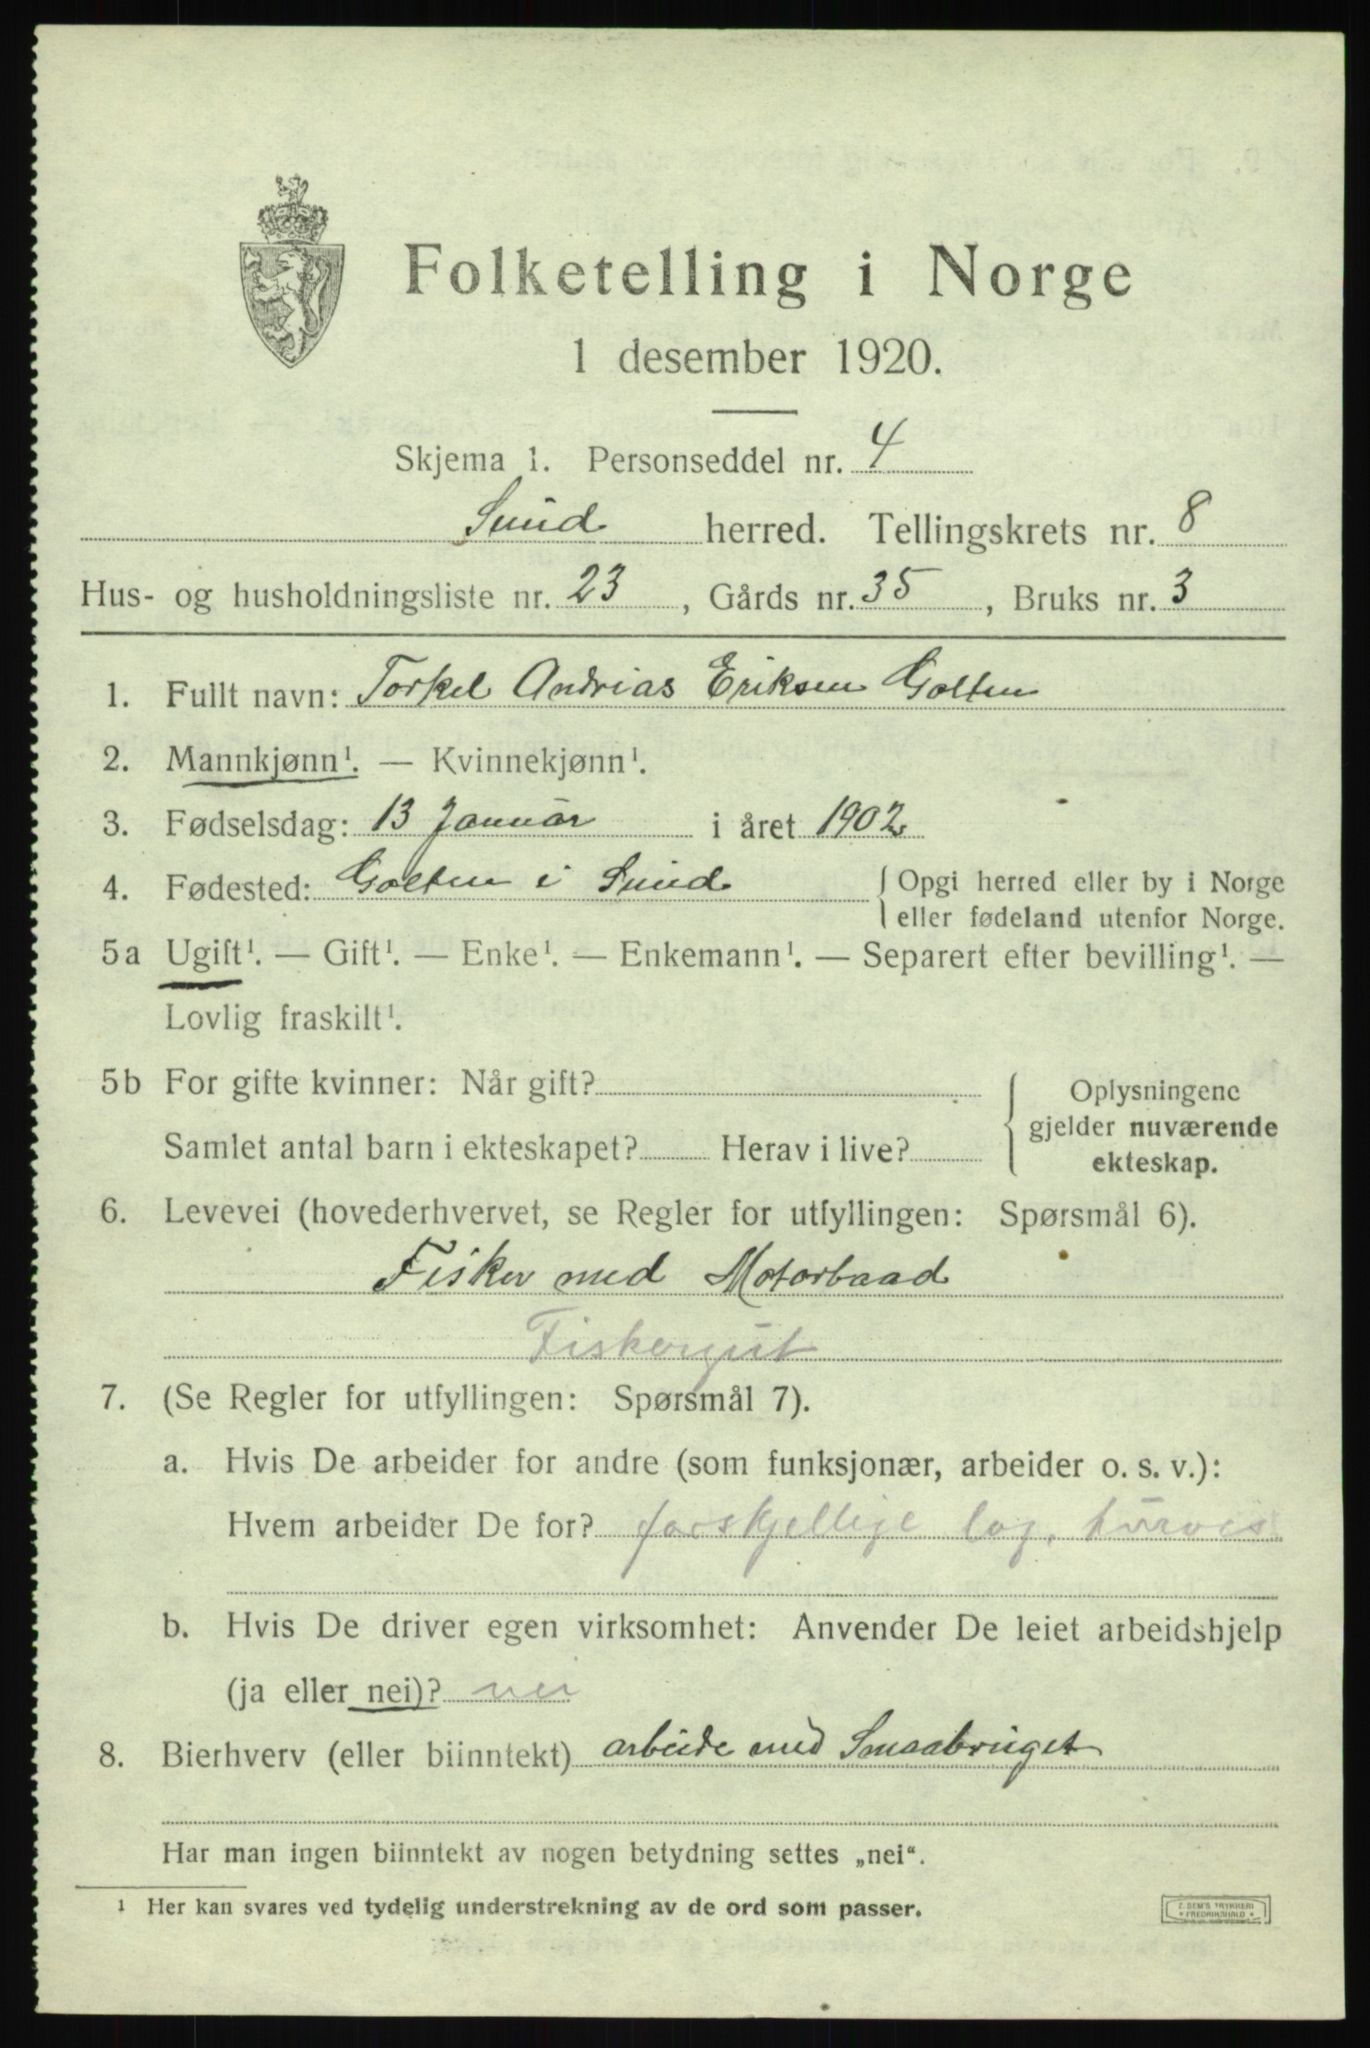 Folketelling i Norge
1 desember 1920.
Skjema 1. Personseddel nr. 4
Sund herred. Tellingskrets nr. 8
Hus- og husholdningsliste nr. 23, Gårds nr. 35, Bruks nr. 3
1. Fullt navn: Torkel Andrias Eriksen Golten
2. Mannkjønn¹. — Kvinnekjønn¹.
3. Fødselsdag: 13 Januar i året 1902
4. Fødested: Golten i Sund { Opgi herred eller by i Norge
eller fødeland utenfor Norge.
5a Ugift¹. — Gift¹. — Enke¹. — Enkemann¹. — Separert efter bevilling¹. —
Lovlig fraskilt¹.
5b For gifte kvinner: Når gift?
Samlet antal barn i ekteskapet? Herav i live?
{ Oplysningene
gjelder nuværende
ekteskap.
6. Levevei (hovederhvervet, se Regler for utfyllingen: Spørsmål 6).
Fisker med Motorbaad
Fiskergut
7. (Se Regler for utfyllingen: Spørsmål 7).
a. Hvis De arbeider for andre (som funksjonær, arbeider o. s. v.):
Hvem arbeider De for? forskjellige lag, turvis
b. Hvis De driver egen virksomhet: Anvender De leiet arbeidshjelp
(ja eller nei)? nei
8. Bierhverv (eller biinntekt) arbeide med Smaabruget
Har man ingen biinntekt av nogen betydning settes „nei“.
¹ Her kan svares ved tydelig understrekning av de ord som passer.
E. SEM'S TRYKKERI
* FREDRIKSHALD *